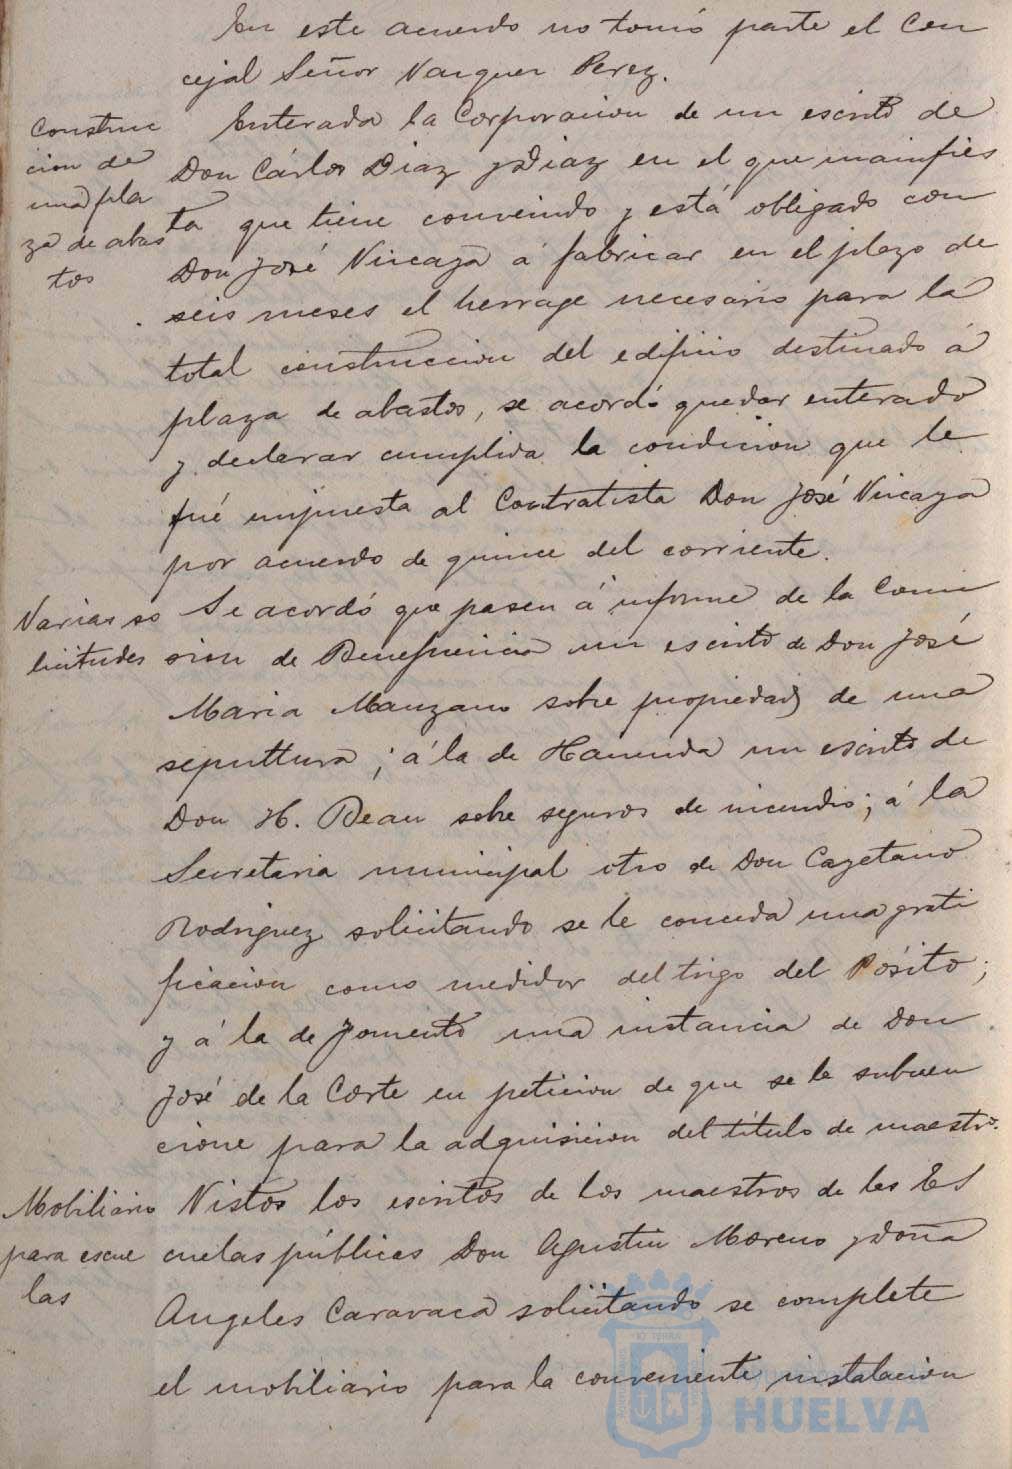 En este acuerdo no tomó parte el Con
cejal Señor Vazquez Perez.
Construc
cion de
una pla
za de abas
tos
Enterada la Corporacion de un escrito de
Don Cárlos Diaz y Diaz en el que manifies
ta que tiene convenido y está obligado con
Don José Vizcaya á fabricar en el plazo de
seis meses el herrage necesario para la
total construccion del edificio destinado á
plaza de abastos, se acordó quedar enterado
y declarar cumplida la condicion que le
fué impuesta al Contratista Don José Vizcaya
por acuerdo de quince del corriente.
Varias so
licitudes
Se acordó que pasen á informe de la Comi
sion de Beneficencia un escrito de Don José
Maria Manzano sobre propiedad de una
sepultura; á la de Hacienda un escrito de
Don H. Bean sobre seguros de incendio; á la
Secretaria municipal otro de Don Cayetano
Rodriguez solicitando se le conceda una grati
ficacion como medidor del trigo del Pósito;
y á la de Fomento una instancia de Don
José de la Corte en peticion de que se le subven
cione para la adquisicion del título de maestro.
Mobiliario
para escue
las
Vistos los escritos de los maestros de las Es
cuelas públicas Don Agustin Moreno y Doña
Angeles Caravaca solicitando se complete
el mobiliario para la conveniente instalacion
HUELVA